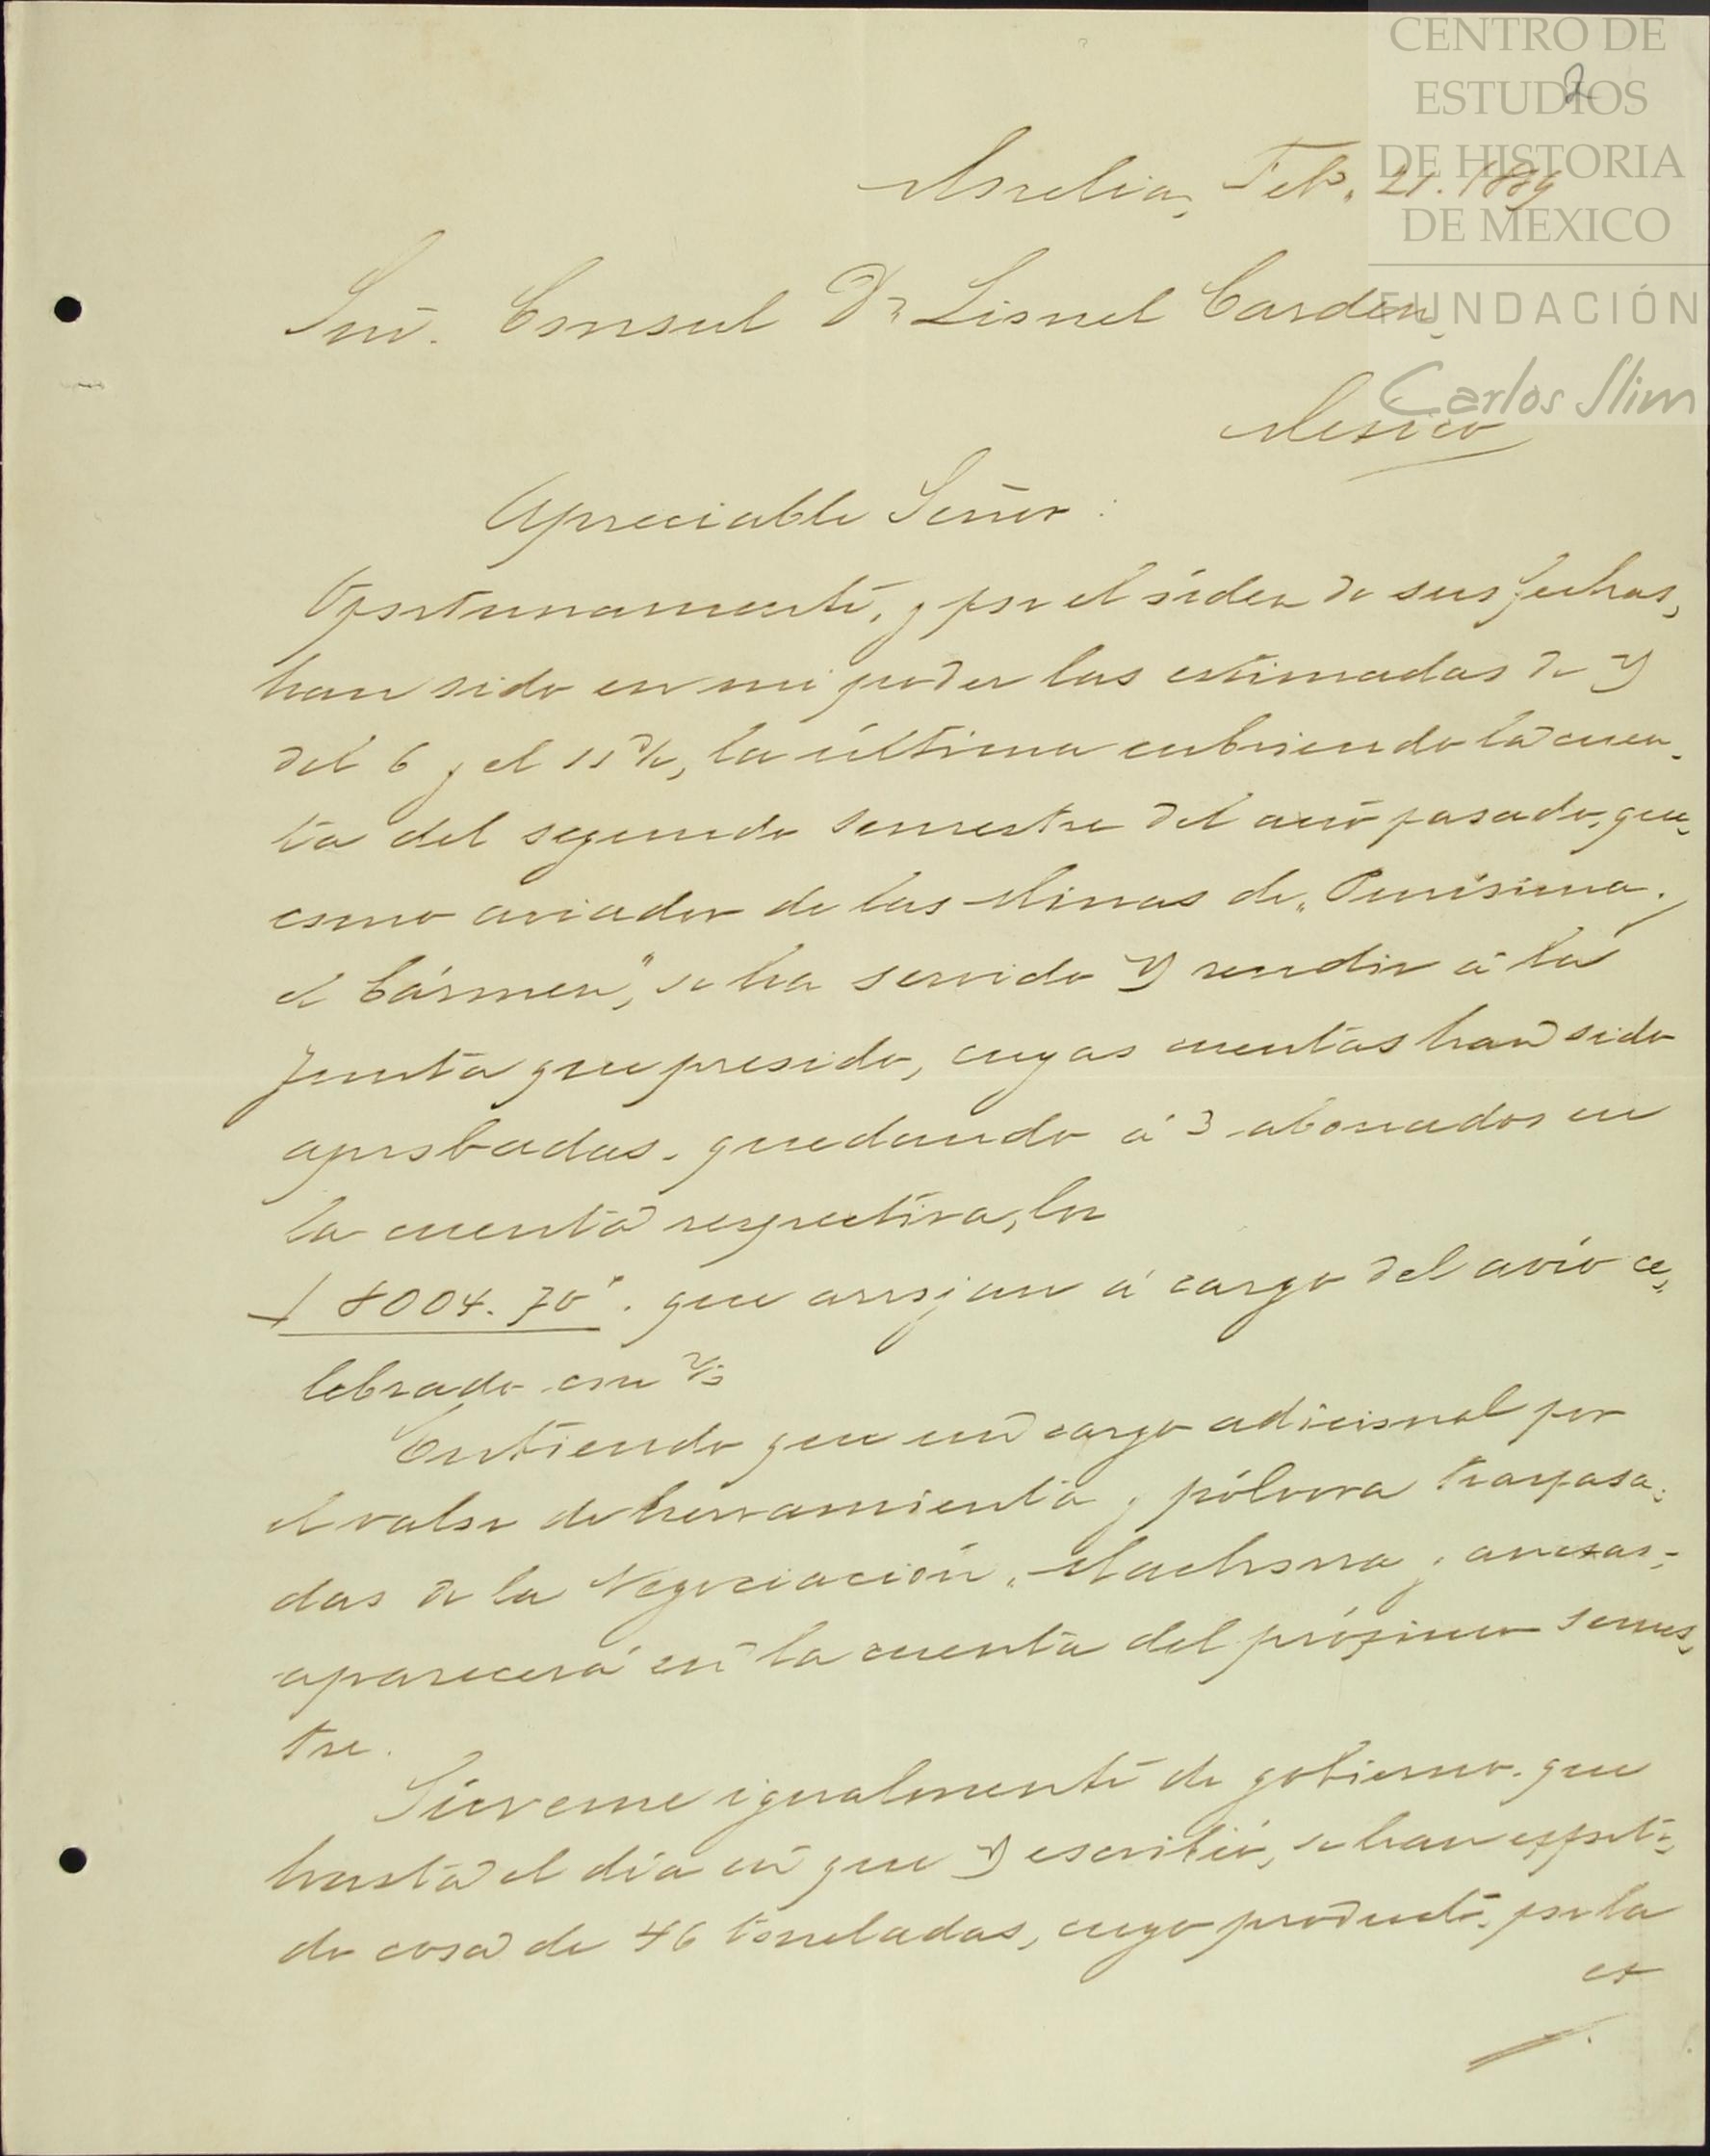 CENTRO DE
ESTUDIOS
DE HISTORIA
DE MEXICO
FUNDACIÓN
Carlos Slim
2
Morelia, Feb. 21. 1889
Señ. Consul Dn Lionel Carden,
Mexico
Apreciable Señor:
Oportunamente, y por el órden de sus fechas,
han sido en mi poder las estimadas de V
del 6 y el 15 %, la última cubriendo la cuen-
ta del segundo semestre del año pasado, que,
como aviador de las Minas de „Purísima y
el Cármen", se ha servido V rendir á la
Junta que presido, cuyas cuentas han sido
aprobadas, quedando á abonados en
la cuenta respectiva, los
$ 8004. 70 . que arrojan á cargo del avío ce-
lebrado con
Entiendo que un cargo adicional por
el valor de herramienta y pólvora traspasa-
das de la Negociación „Machorra y anexas-
aparecerá en la cuenta del próximo semes-
tre.
Sírveme igualmente de gobierno, que
hasta el día en que V escribió, se han
do cosa de 46 toneladas, cuyo producto, por la